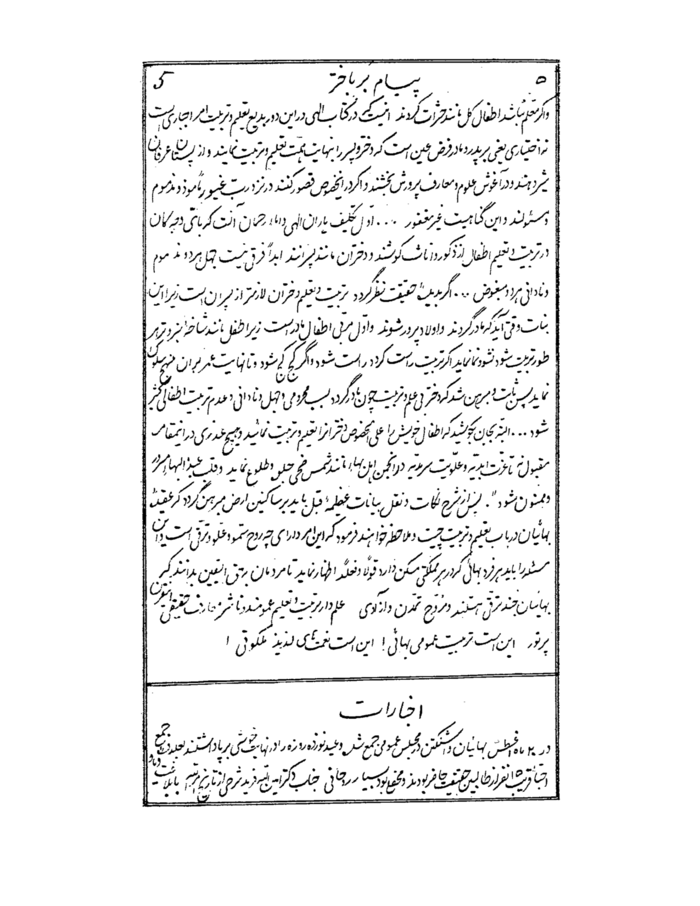 ۵ پیام بر باختر 5
و اگر معلّم نباشد اطفال کل مانند حشرات گردند اینست که در کتاب الهی در این دور بدیع تعلیم و تربیت امر اجباری است
نه اختیاری یعنی بر پدر و مادر فرض عین است که دختر و پسر را بنهایت همّت تعلیم و تربیت نمایند و از پستان عرفان
شیر دهند و در آغوش علوم و معارف پرورش بخشند و اگر در اینخصوص قصور کنند در نزد رب غیور مأخوذ و مذموم
و مسئولند و این گناهیست غیر مغفور ... اوّل تکلیف یاران الهی و اماء رحمان آنست که بأی وجه کان
در تربیت و تعلیم اطفال از ذکور و اناث کوشند و دختران مانند پسرانند ابداً فرقی نیست جهل هر دو مذموم
و نادانی هر دو مبغوض ... اگر بدیدهٔ حقیقت نظر گردد تربیت و تعلیم دختران لازمتر از پسران است زیرا این
بنات وقتی آید که مادر گردند و اولاد پرور شوند و اوّل مربّی اطفال مادر است زیرا طفل مانند شاخهٔ سبز و تر هر
طور تربیت شود نشو و نما نماید اگر تربیت راست گردد راست شود و اگر کج کج شود و تا نهایت عمر بر آن منهج سلوک
نماید پس ثابت و مبرهن شد که دختر بی علم و تربیت چون مادر گردد سبب محرومی و جهل و نادانی و عدم تربیت اطفال کثیر
شود ... البتّه بجان بکوشید که اطفال خویش را علی الخصوص دختران را تعلیم و تربیت نمائید و هیچ عذری در اینمقام
مقبول نه تا عزّت ابدیه و علویّت سرمدیه در انجمن اهل بهاء مانند شمس ضحی جلوه و طلوع نماید و قلب عبدالبهاء مسرور
و ممنون شود". پس از شرح نکات و نقل بیانات عظیمهٔ قبل باید بر ساکنین ارض مبرهن گردد که عقیدهٔ
بهائیان در باب تعلیم و تربیت چیست و ملاحظه خواهند فرمود که این امر دارای چه روح سموّ و علوّ و ترقی است و این
مسئله را باید هر فرد بهائی که در هر مملکتی مسکن دارد قولاً و فعلاً اظهار نماید تا مردمان بحق الیقین بدانند که
بهائیان چند ترقی هستند و مروّج تمدّن و آزادی علمدار تربیت و تعلیم عمومند و ناشر معارف حقیقی
پرتور این است تربیت عمومی بهائی ! این است نعمتهای لذیذ ملکوتی !
اخبارات
در ۲۰ ماه اغسطس بهائیان واشنگتن در مجلس عمومی جمع شدند و عید نوزده روزه را در نهایت خوشی بر پا داشتند بعلاوه جمع
احبّا قریب ۱۵ نفر از طالبین حقیقت حاضر بودند و محفلی بود بسیار روحانی جناب دکتر امین الله فرید شرحی از تاریخ